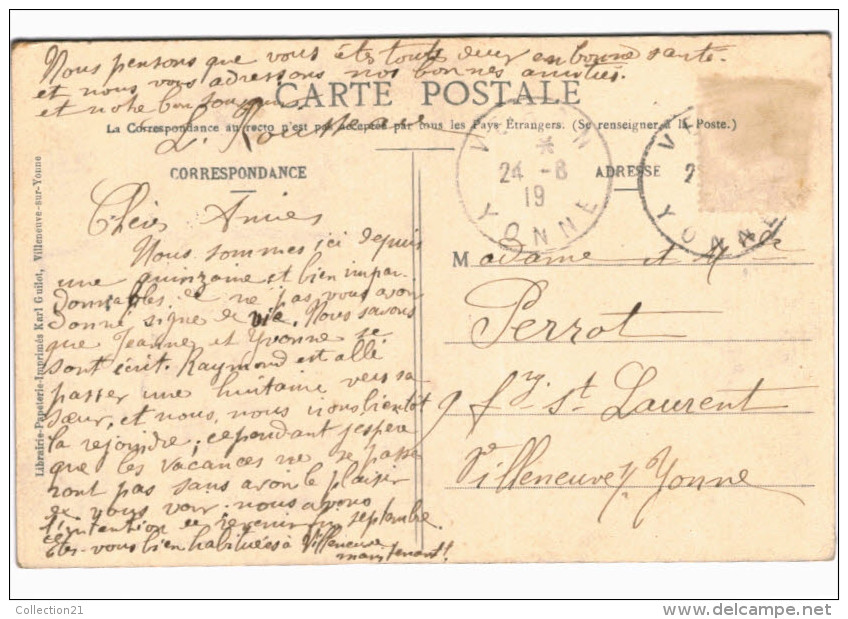 Nous pensons que vous êtes toutes deux en bonne santé.
et nous vous adressons nos bonnes amitiés.
et notre bon souvenir.
CARTE POSTALE
La Correspondance au recto n'est pas acceptée par tous les Pays Étrangers. (Se renseigner à la Poste.)
L. Rousseau
CORRESPONDANCE
ADRESSE
24 - 8
19
YONNE
YONNE
Chères Amies
Nous sommes ici depuis
une quinzaine et bien impar-
donnables de ne pas vous avoir
donné signe de vie. Nous savons
que Jeanne et Yvonne se
sont écrit. Raymond est allé
passer une huitaine vers sa
sœur, et nous, nous irons bientôt
la rejoindre; cependant j'espère
que les vacances ne se passe
ront pas sans avoir le plaisir
de vous voir. nous avons
l'intention de revenir en septembre.
êtes-vous bien habituées à Villeneuve
maintenant!
Madame et Melle
Perrot
9 f. St Laurent
Villeneuve s/ Yonne
Librairie-Papeterie-Imprimés Karl Guillot, Villeneuve-sur-Yonne
Collection21
delcampe.net